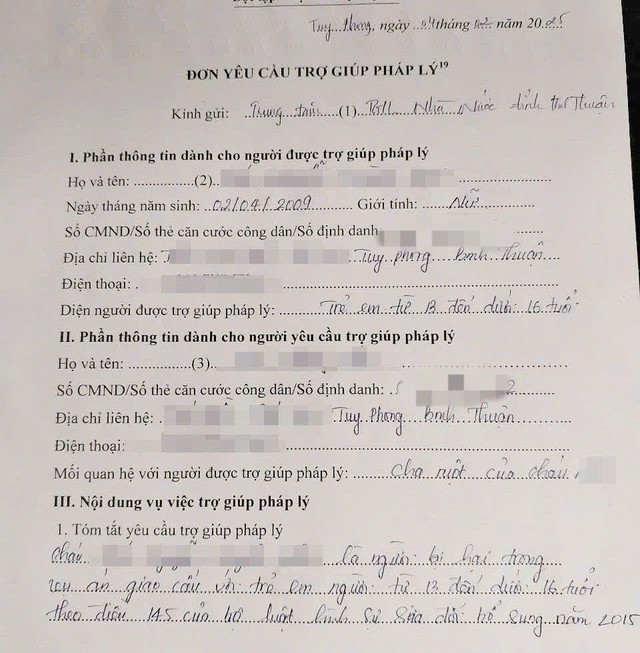 Tuy Phong, ngày 04 tháng 02 năm 2025
ĐƠN YÊU CẦU TRỢ GIÚP PHÁP LÝ19
Kính gửi: Trung tâm (1) TGPL Nhà Nước tỉnh Bình Thuận
I. Phần thông tin dành cho người được trợ giúp pháp lý
Họ và tên: ...............(2)...
Ngày tháng năm sinh: ..02/04/2009.............. Giới tính: ......Nữ.....
Số CMND/Số thẻ căn cước công dân/Số định danh
Địa chỉ liên hệ: Tuy Phong Bình Thuận
Điện thoại: .
Diện người được trợ giúp pháp lý: Trẻ em từ 13 đến dưới 16 tuổi
II. Phần thông tin dành cho người yêu cầu trợ giúp pháp lý
Họ và tên: ..............(3)...
Số CMND/Số thẻ căn cước công dân/Số định danh: 2
Địa chỉ liên hệ: Tuy Phong Bình Thuận
Điện thoại:
Mối quan hệ với người được trợ giúp pháp lý: Cha ruột của cháu
III. Nội dung vụ việc trợ giúp pháp lý
1. Tóm tắt yêu cầu trợ giúp pháp lý
Cháu là người bị hại trong
vụ án giao cấu với trẻ em người từ 13 đến dưới 16 tuổi
theo điều 145 của bộ luật hình sự sửa đổi bổ sung năm 2015